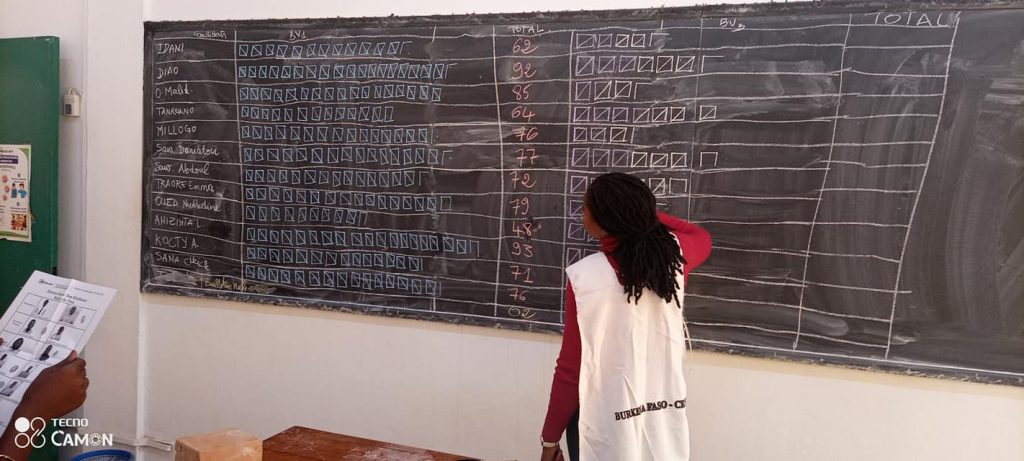 Candidats BV1 TOTAL BV2 TOTAL
IDANI 62
DIAO 92
O. Malik 85
TANKOANO 64
MILLOGO 76
Saw. Daniatou 77
Saw. Abdoul 72
TRAORE 79
OUED 48
AHIZINTA L 93
KOCTY A. 71
SANA 76
Bulletin Nul 02
BURKINA FASO - CE
TECNO
CAMON